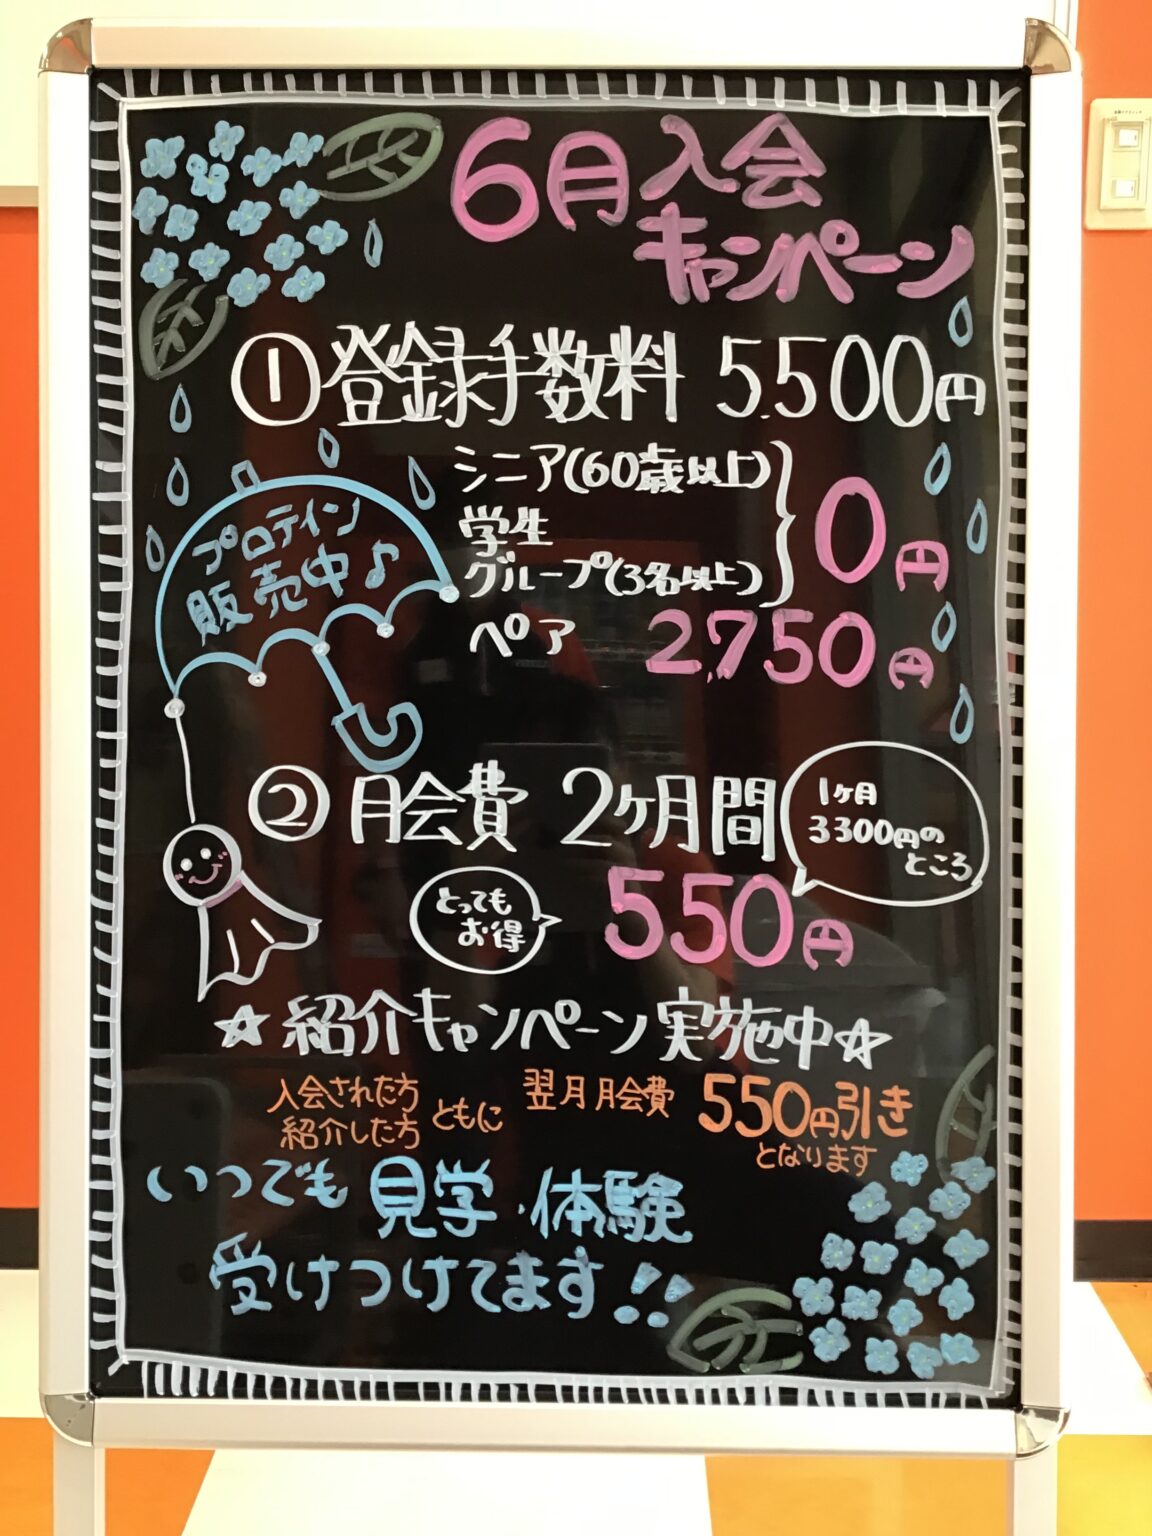 6月入会
キャンペーン
①登録手数料 5,500円
シニア(60歳以上)
学生
グループ(3名以上)
0円
ペア 2,750円
プロテイン
販売中♪
②月会費 2ヶ月間
1ヶ月
3300円の
ところ
とっても
お得
550円
☆紹介キャンペーン実施中☆
入会された方
紹介した方
ともに
翌月月会費 550円引き
となります
いつでも 見学・体験
受けつけてます!!